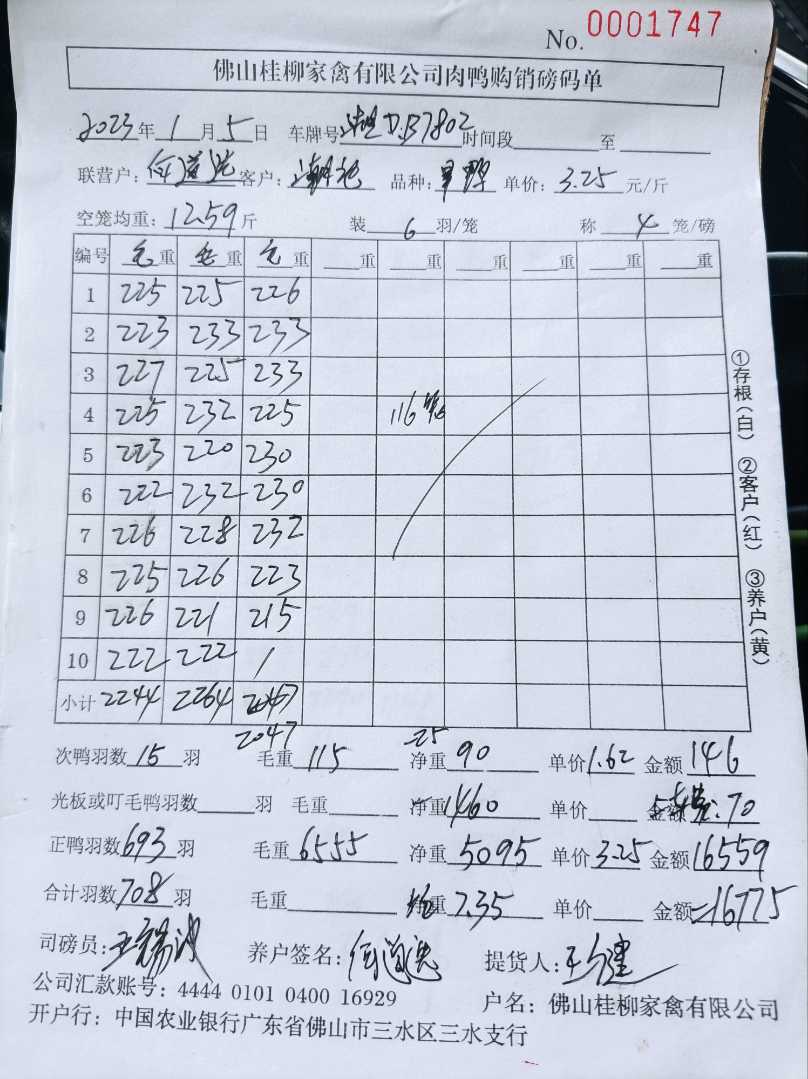 No. 0001747
佛山桂柳家禽有限公司肉鸭购销磅码单
2023年1月5日 车牌号 D.B7802 时间段 至
联营户: 何道 客户: 品种: 单价: 3.25 元/斤
空笼均重: 12.59 斤 装 6 羽/笼 称 4 笼/磅
编号 毛重 毛重 毛重 重 重 重 重 重 重
1 225 225 226
2 223 233 233
3 227 225 233
4 225 232 225 116笼
5 223 220 230
6 222 232 230
7 226 228 232
8 225 226 223
9 226 221 215
10 222 222 /
小计 2244 2264 2047
2047
次鸭羽数 15 羽 毛重 115 净重 -25 90 单价 1.62 金额 146
光板或叮毛鸭羽数 羽 毛重 净重 1460 单价 金额 70
正鸭羽数 693 羽 毛重 6555 净重 5095 单价 3.25 金额 16559
合计羽数 708 羽 毛重 净重 7.35 单价 金额 =16775
司磅员: 王锡 养户签名: 何道 提货人: 王建
公司汇款账号: 4444 0101 0400 16929 户名: 佛山桂柳家禽有限公司
开户行: 中国农业银行广东省佛山市三水区三水支行
①存根(白) ②客户(红) ③养户(黄)